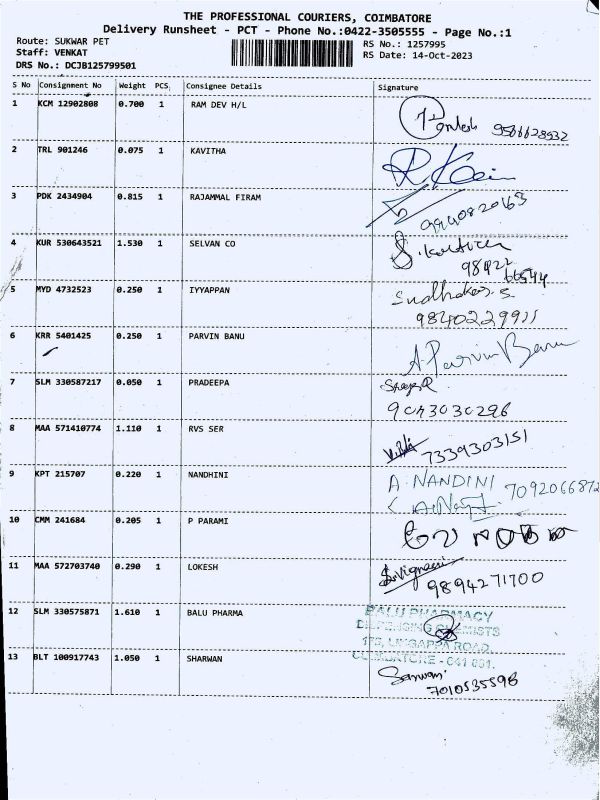 THE PROFESSIONAL COURIERS, COIMBATORE
Delivery Runsheet - PCT - Phone No.:0422-3505555 - Page No.:1
Route: SUKWAR PET
Staff: VENKAT
DRS No.: DCJB125799501
RS No.: 1257995
RS Date: 14-Oct-2023
S No Consignment No Weight PCS. Consignee Details Signature
1 KCM 12902808 0.700 1 RAM DEV H/L
9566628932
2 TRL 901246 0.075 1 KAVITHA
3 PDK 2434904 0.815 1 RAJAMMAL FIRAM
9940820163
4 KUR 530643521 1.530 1 SELVAN CO
98422
66544
5 MYD 4732523 0.250 1 IYYAPPAN
Sudhakar. S.
9840229911
6 KRR 5401425 0.250 1 PARVIN BANU A. Parvin Banu
7 SLM 330587217 0.050 1 PRADEEPA
9043030296
8 MAA 571410774 1.110 1 RVS SER
7339303151
9 KPT 215707 0.220 1 NANDHINI A. NANDINI
7092066872
10 CMM 241684 0.205 1 P PARAMI
11 MAA 572703740 0.290 1 LOKESH
9894271700
12 SLM 330575871 1.610 1 BALU PHARMA BALU PHARMACY
DISPENSING CHEMISTS
LINGAPPA ROAD,
COIMBATORE - 641 001.
13 BLT 100917743 1.050 1 SHARWAN Sarwan
7010535598